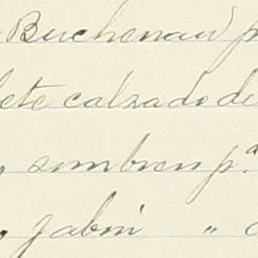 Buchenau p
lete calzado de
" sombrero p.ª
" jabón "